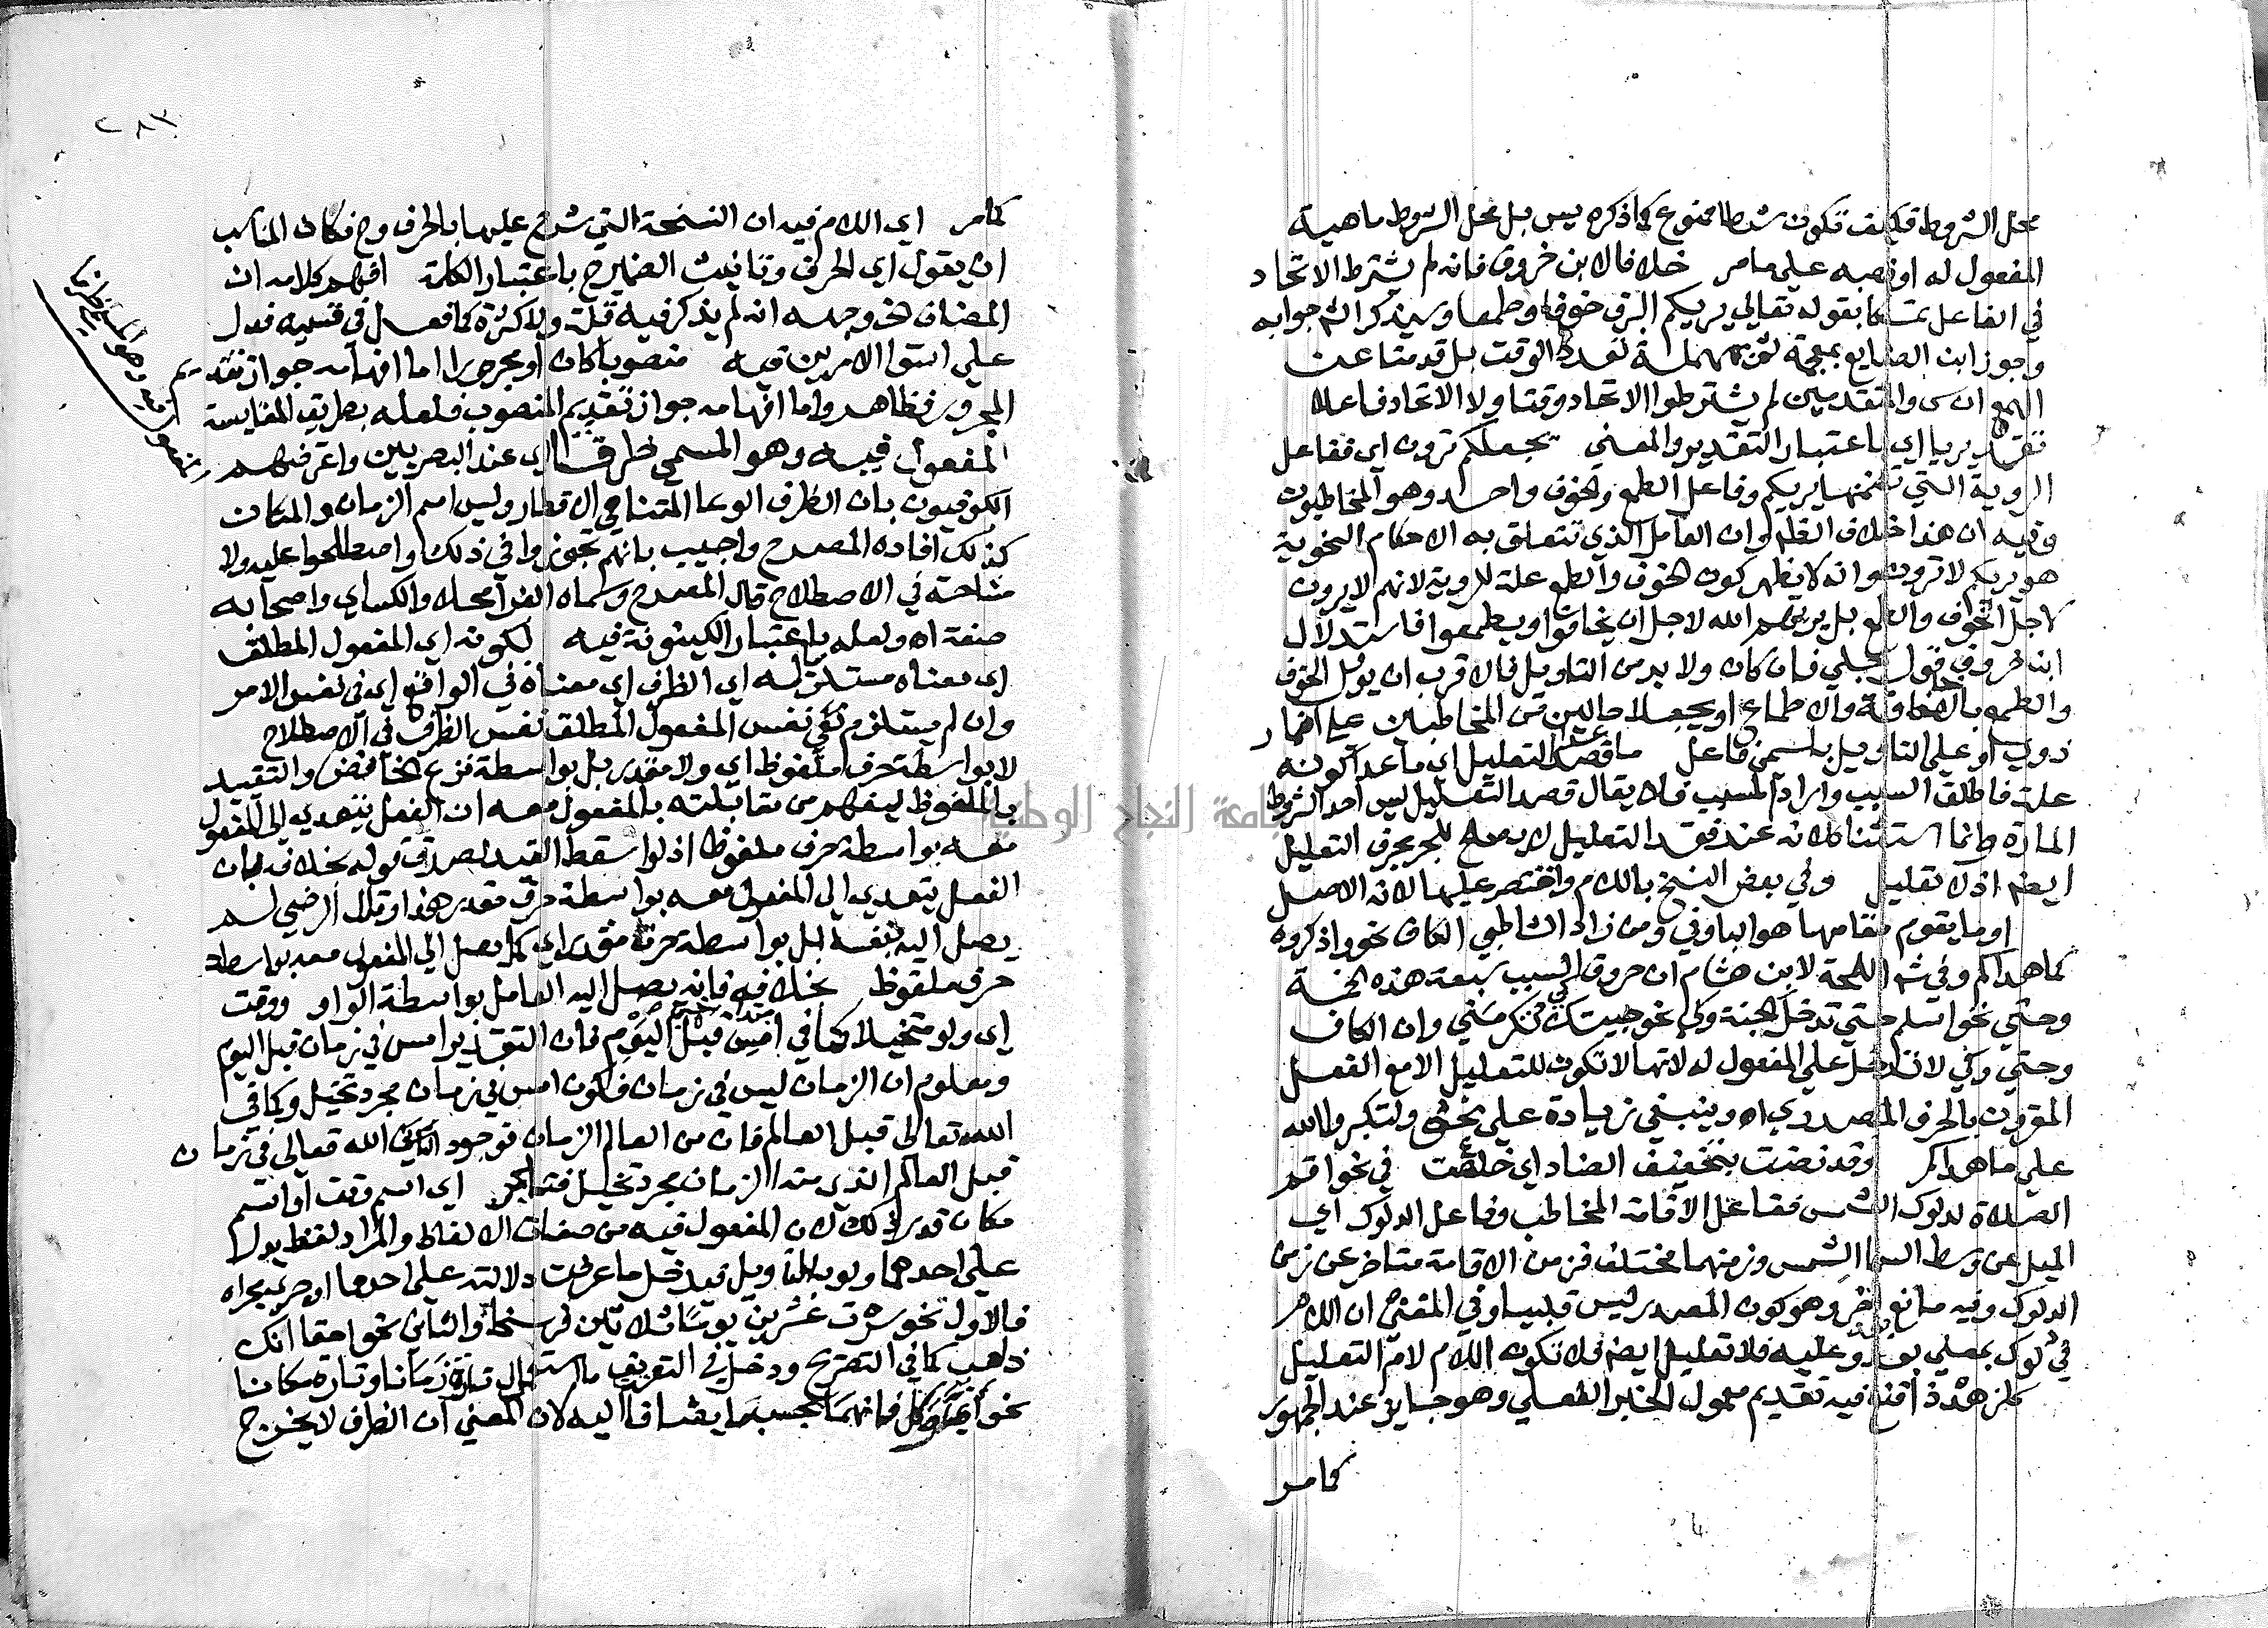 محل الشروط فكيف تكون شرطا ممنوع كما ذكره يس بل محل الشروط ماهية
المفعول له او نصبه على ما مر خلافا لابن خروف فانه لم يشترط الاتحاد
في الفاعل تمسكا بقوله تعالى يريكم البرق خوفا وطمعا وسيذكر الش جوابه
وجوز ابن الضايع بمعجمة فمهملة تعدد الوقت بل قد متا عن
ان س والمتقدمين لم يشترطوا الاتحاد وقتا ولا الاتحاد فاعلا
تقديريا اي باعتبار التقدير والمعنى يجعلكم ترون اي ففاعل
الروية التي تضمنها يريكم وفاعل الطمع والخوف واحد وهو المخاطبون
وفيه ان هذا خلاف الظاهر وان العامل الذي تتعلق به الاحكام النحوية
هو يريكم لا ترون وانه لا يظهر كون الخوف والطمع علة للروية لانهم لا يرون
لاجل الخوف والطمع بل يريهم الله لاجل ان يخافوا ويطمعوا فاستدلال
ابن خروف قول جلي فان كان ولا بد من التاويل فالاقرب ان يوول الخوف
والطمع بالاخافة والاطماع او يجعلا حالين من المخاطبين على اضمار
ذوي او على التاويل باسم فاعل ما قصد التعليل اي ما عدا كونه
علة فاطلق السبب واراد المسبب فلا يقال قصد التعليل ليس احد الشروط
المارة وانما استثناه لانه عند فقد التعليل لا يصلح للجر بحرف التعليل
ايضا اذ لا تعليل وفي بعض النسخ باللام واقتصر عليها لانه الاصل
او ما يقوم مقامها هو الباوفي ومن زاد الشاطبي الكاف نحو واذكروه
كما هداكم وفي ش اللمحة لابن هشام ان حروف السبب سبعة هذه الخمسة
وحتى نحو اسلم حتى تدخل الجنة وكي نحو جيتك كي تكرمني وان الكاف
وحتى وكي لا تدخل على المفعول له لانها لا تكون للتعليل الا مع الفعل
المقرون بالحرف المصدري اه وينبغي زيادة على نحو ولتكبروا الله
على ما هداكم وقد نضت بتخفيف الضاد اي خلعت في نحو اقم
الصلاة لدلوك الشمس ففاعل الاقامة المخاطب وفاعل الدلوك اي
الميل عن وسط السما الشمس وزمنهما مختلف فزمن الاقامة متاخر عن زمن
الدلوك وفيه مانع اخر وهو كون المصدر ليس قلبيا وفي المغني ان اللام
في لدلوك بمعنى بعد وعليه فلا تعليل ايضا فلا تكون اللام لام التعليل
كلزهد ذا قنع فيه تقديم معمول الخبر الفعلي وهو جايز عند الجمهور
كما مر
٢٨٣
كما مر اي اللام فيه ان النسخة التي شرح عليها بالحرف وح فكان المناسب
ان يقول اي الحرف وتانيث الضمير ح باعتبار الكلمة افهم كلامه ان
المضاف الخ وجهه انه لم يذكر فيه قلة ولا كثرة كما فعل في قسيميه فدل
على استوا الامرين فيه منصوبا كان او مجرورا اما افهامه جواز تقديم
المجرور فظاهر واما افهامه جواز تقديم المنصوب فلعله بطريق المقايسة
المفعول فيه وهو المسمى ظرفا اي عند البصريين واعترضهم
الكوفيون بان الظرف الوعا المتناهي الاقطار وليس اسم الزمان والمكان
كذلك افاده المصرح واجيب بانهم تجوزوا في ذلك واصطلحوا عليه ولا
مشاحة في الاصطلاح قال المصرح وسماه الفرا محلا والكساي واصحابه
صفة اه ولعله باعتبار الكينونة فيه لكونه اي المفعول المطلق
اي معناه مستلزم له اي الظرف اي معناه في الواقع اي في نفس الامر
وان لم يستلزم نفس المفعول المطلق نفس الظرف في الاصطلاح
لا بواسطة حرف ملفوظ اي ولا مقدر بل بواسطة نزع الخافض والتقييد
بالملفوظ ليفهم من مقابلته بالمفعول معه ان الفعل يتعدى الى المفعول
معه بواسطة حرف ملفوظ اذ لو اسقط القيد لصدق قوله بخلافه بان
الفعل يتعدى الى المفعول معه بواسطة حرف مقدر هذا وقال الرضي لم
يصل اليه بنفسه بل بواسطة حرف مقدر اي كما يصل الى المفعول معه بواسطة
حرف ملفوظ بخلافه فانه يصل اليه العامل بواسطة الواو ووقت
اي ولو تخيلا كما في امس قبل اليوم فان التقدير امس في زمان قبل اليوم
ومعلوم ان الزمان ليس في زمان فكون امس في زمان مجرد تخيل وكما في
الله تعالى قبل العالم فان من العالم الزمان فوجود الله تعالى في زمان
قبل العالم الذي منه الزمان مجرد تخيل اي اسم وقت او اسم
مكان قدر ذلك لان المفعول فيه من صفات الالفاظ والمراد لفظ يدل
على احدهما ولو بالتاويل فيدخل ما عرضت دلالته على احدهما او جرى مجراه
فالاول نحو سرت عشرين يوما ثلاثين فرسخا والثاني نحو احقا انك
ذاهب كما في التصريح ودخل في التعريف ما استعمال تارة زمانا وتارة مكانا
نحو اي وكل فانهما بحسب ما يضافا اليه لان المعنى ان الظرف لا يخرج
المفعول فيه وهو المسمى ظرفا
جامعة النجاح الوطنية